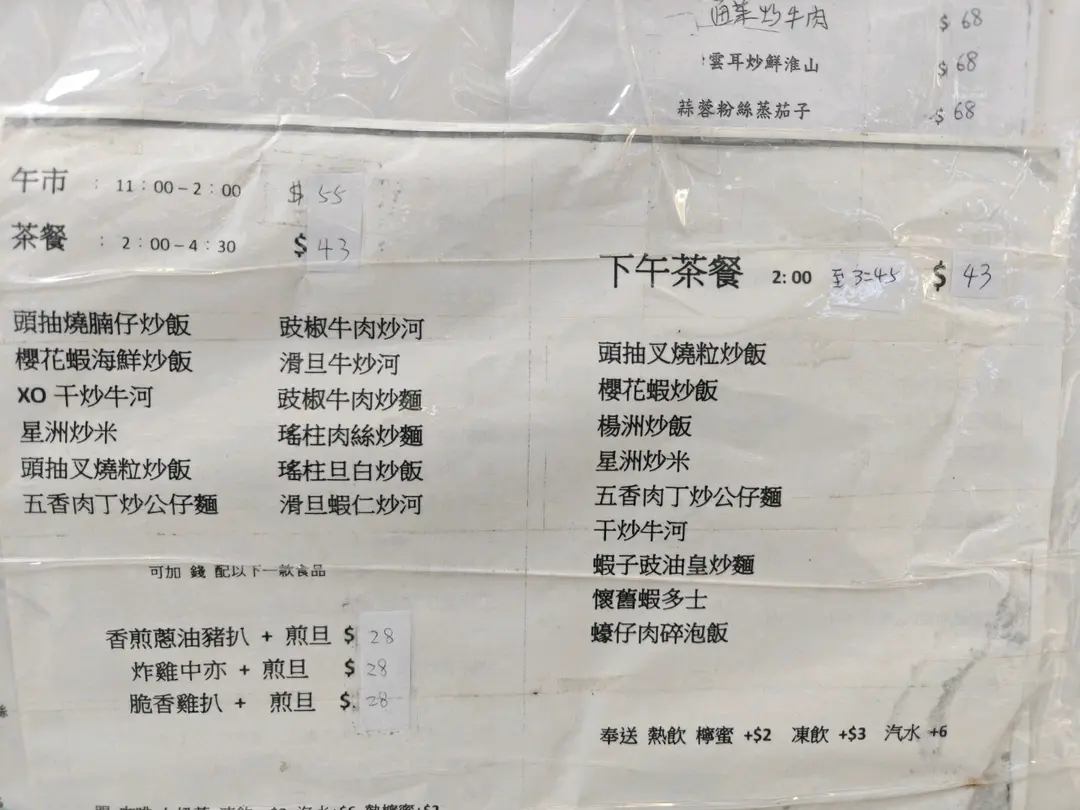 炒牛肉 $68
雲耳炒鮮淮山 $68
蒜蓉粉絲蒸茄子 $68
午市 : 11:00-2:00 $55
茶餐 : 2:00-4:30 $43
頭抽燒腩仔炒飯 豉椒牛肉炒河
櫻花蝦海鮮炒飯 滑旦牛炒河
XO 干炒牛河 豉椒牛肉炒麵
星洲炒米 瑤柱肉絲炒麵
頭抽叉燒粒炒飯 瑤柱旦白炒飯
五香肉丁炒公仔麵 滑旦蝦仁炒河
可加 錢 配以下一款食品
香煎蔥油豬扒 + 煎旦 $28
炸雞中亦 + 煎旦 $28
脆香雞扒 + 煎旦 $28
下午茶餐 2:00 至3=45 $43
頭抽叉燒粒炒飯
櫻花蝦炒飯
楊洲炒飯
星洲炒米
五香肉丁炒公仔麵
干炒牛河
蝦子豉油皇炒麵
懷舊蝦多士
蠔仔肉碎泡飯
奉送 熱飲 檸蜜 +$2 凍飲 +$3 汽水 +6